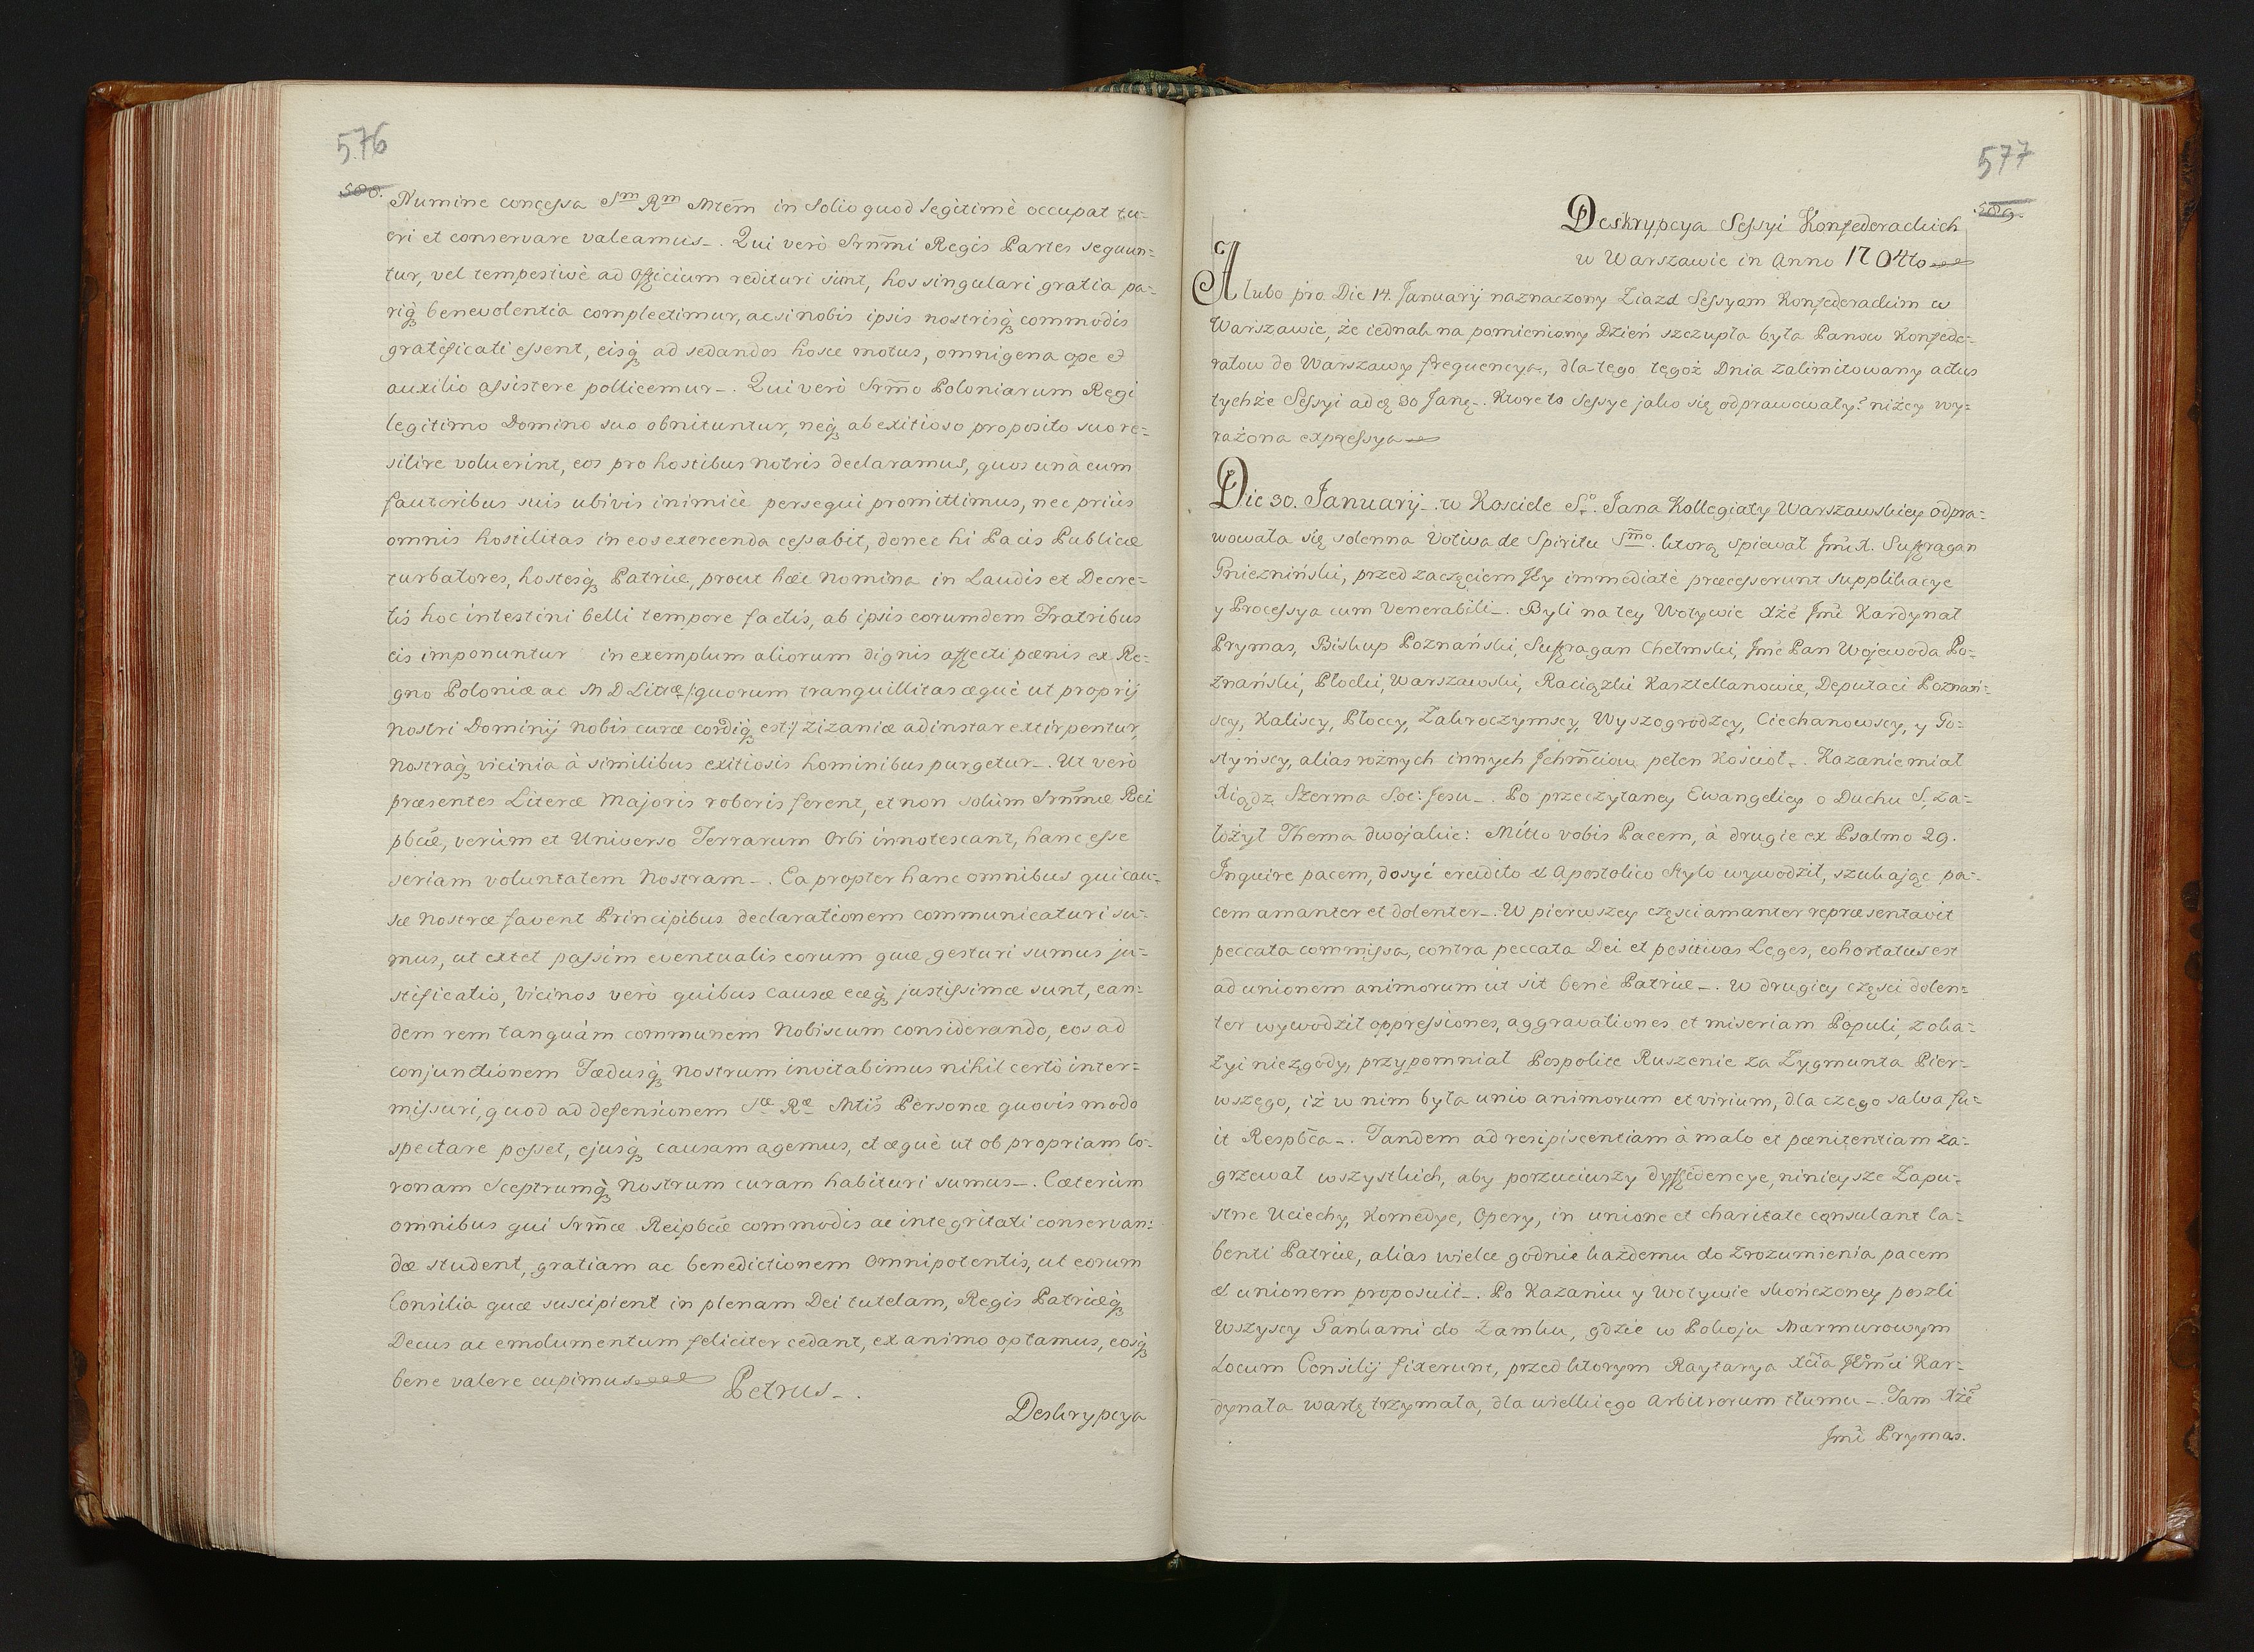 576
508.
Numine concessa Sm Rm Mtem in Solio quod legitimè occupat tu-
eri et conservare valeamus_. Qui verò Srnmi Regis Partes sequun-
tur, vel tempestivè ad officium redituri sunt, hos singulari gratia pa-
riq benevolentia complectimur, ac si nobis ipsis nostrisq commodis
gratificati essent, eisq ad sedandos hosce motus, omnigena ope et
auxilio assistere pollicemur_. Qui verò Srmo Poloniarum Regi
legitimo Domino suo obnituntur, neq ab exitioso proposito suo re-
silire voluerint, eos pro hostibus notris declaramus, quos unà cum
fautoribus suis ubivis inimicè persequi promittimus, nec priùs
omnis hostilitas in eos exercenda cessabit, donec hi Pacis Publicæ
turbatores, hostesq Patriæ, prout hæc Nomina in Laudis et Decre-
tis hoc intestini belli tempore factis, ab ipsis eorumdem Fratribus
eis imponuntur in exemplum aliorum dignis affecti pœnis ex Re-
gno Poloniæ ac M D Littæ /:quorum tranquillitas æquè ut proprij
nostri Dominij nobis curæ cordiq est:/ zizaniæ ad instar extirpentur,
nostraq vicinia à similibus exitiosis hominibus purgetur_. Ut verò
præsentes Literæ Majoris roboris forent, et non solùm Srnmæ Rei
pbcæ, verùm et Universo Terrarum Orbi innotescant, hanc esse
seriam voluntatem Nostram_. Ea propter hanc omnibus qui cau-
sæ Nostræ favent Principibus declarationem communicaturi su-
mus, ut extet passim eventualis eorum quæ gesturi sumus ju-
stificatio, Vicinos verò quibus causæ eæq justissimæ sunt, ean-
dem rem tanquàm communem Nobiscum considerando, eos ad
conjunctionem Fœdusq nostrum invitabimus nihil certò inter-
missuri, quod ad defensionem Sæ Ræ Mtis Personæ quovis modo
spectare posset, ejusq causam agemus, et æquè ut ob propriam Co-
ronam Sceptrumq Nostrum curam habituri sumus_. Cæterùm
omnibus qui Srmæ Reipbcæ commodis ac integritati conservan-
dæ student, gratiam ac benedictionem Omnipotentis, ut eorum
Consilia quæ suscipient in plenam Dei tutelam, Regis Patriæq
Decus ac emolumentum feliciter cedant, ex animo optamus, eosq
bene valere cupimus
Petrus_.
Deskrypcya
577
509.
Deskrypcya Sessyi Konfederackich
w Warszawie in Anno 1704to
A lubo pro Die 14. Januarij naznaczony Ziazd Sessyom Konfederackim w
Warszawie, że iednak na pomieniony Dzień szczupła była Panow Konfede-
ratow do Warszawy frequencya, dla tego tegoż Dnia zalimitowany actus
tychże Sessyi ad 30 Jan_. Ktore to Sessye jako się odprawowały? niżey wy-
rażona expressya
Die 30. Januarij_. w Kosciele So. Jana Kollegiaty Warszawskiey odpra-
wowała się solenna Votiva de Spiritu Smo. ktorą spiewał Jmć X. Suffragan
Gniezniński, przed zaczęciem Jey immediatè præcesserunt supplikacye
y Processya cum Venerabili_. Byli na tey Wotywie Xżę Jmć Kardynał
Prymas, Biskup Poznański, Suffragan Chełmski, Jmć Pan Wojewoda Po-
znański, Płocki, Warszawski, Raciązki Kasztellanowie, Deputaci Poznań-
scy, Kaliscy, Płoccy, Zakroczymscy, Wyszogrodzcy, Ciechanowscy, y Go-
styńscy, alias rożnych innych Jchmciow pełen Kościoł_. Kazanie miał
Xiądz Szerma Soc: Jesu_. Po przeczytaney Ewangeliey o Duchu S, za-
łożył Thema dwojakie: Mitto vobis Pacem, à drugie ex Psalmo 29.
Inquire pacem, dosyć erudito et Apostolico stylo wywodził, szukając pa-
cem amanter et dolenter_. W pierwszey części amanter repræsentavit
peccata commissa, contra peccata Dei et positivas Leges, cohortatus est
ad unionem animorum ut sit benè Patriæ_. W drugiey części dolen-
ter wywodził oppressiones, aggravationes et miseriam Populi, z oka-
zyi niezgody, przypomniał Pospolite Ruszenie za Zygmunta Pier-
wszego, iż w nim była unio animorum et virium, dla czego salva fu-
it Respbca_. Tandem ad resipiscentiam à malo et pœnitentiam za-
grzewał wszystkich, aby porzuciwszy dyffidencye, ninieysze Zapu-
stne Uciechy, Komedye, Opery, in unione et charitate consulant la-
benti Patriæ, alias wielce godnie każdemu do zrozumienia pacem
et unionem proposuit_. Po Kazaniu y Wotywie skończoney poszli
Wszyscy Pankami do Zamku, gdzie w Pokoju Marmurowym
Locum Consilij fixerunt, przed ktorym Raytarya Xcia Jmci Kar-
dynała wartę trzymała, dla wielkiego Arbitrorum tłumu_. Tam Xżę
Jmć Prymas.